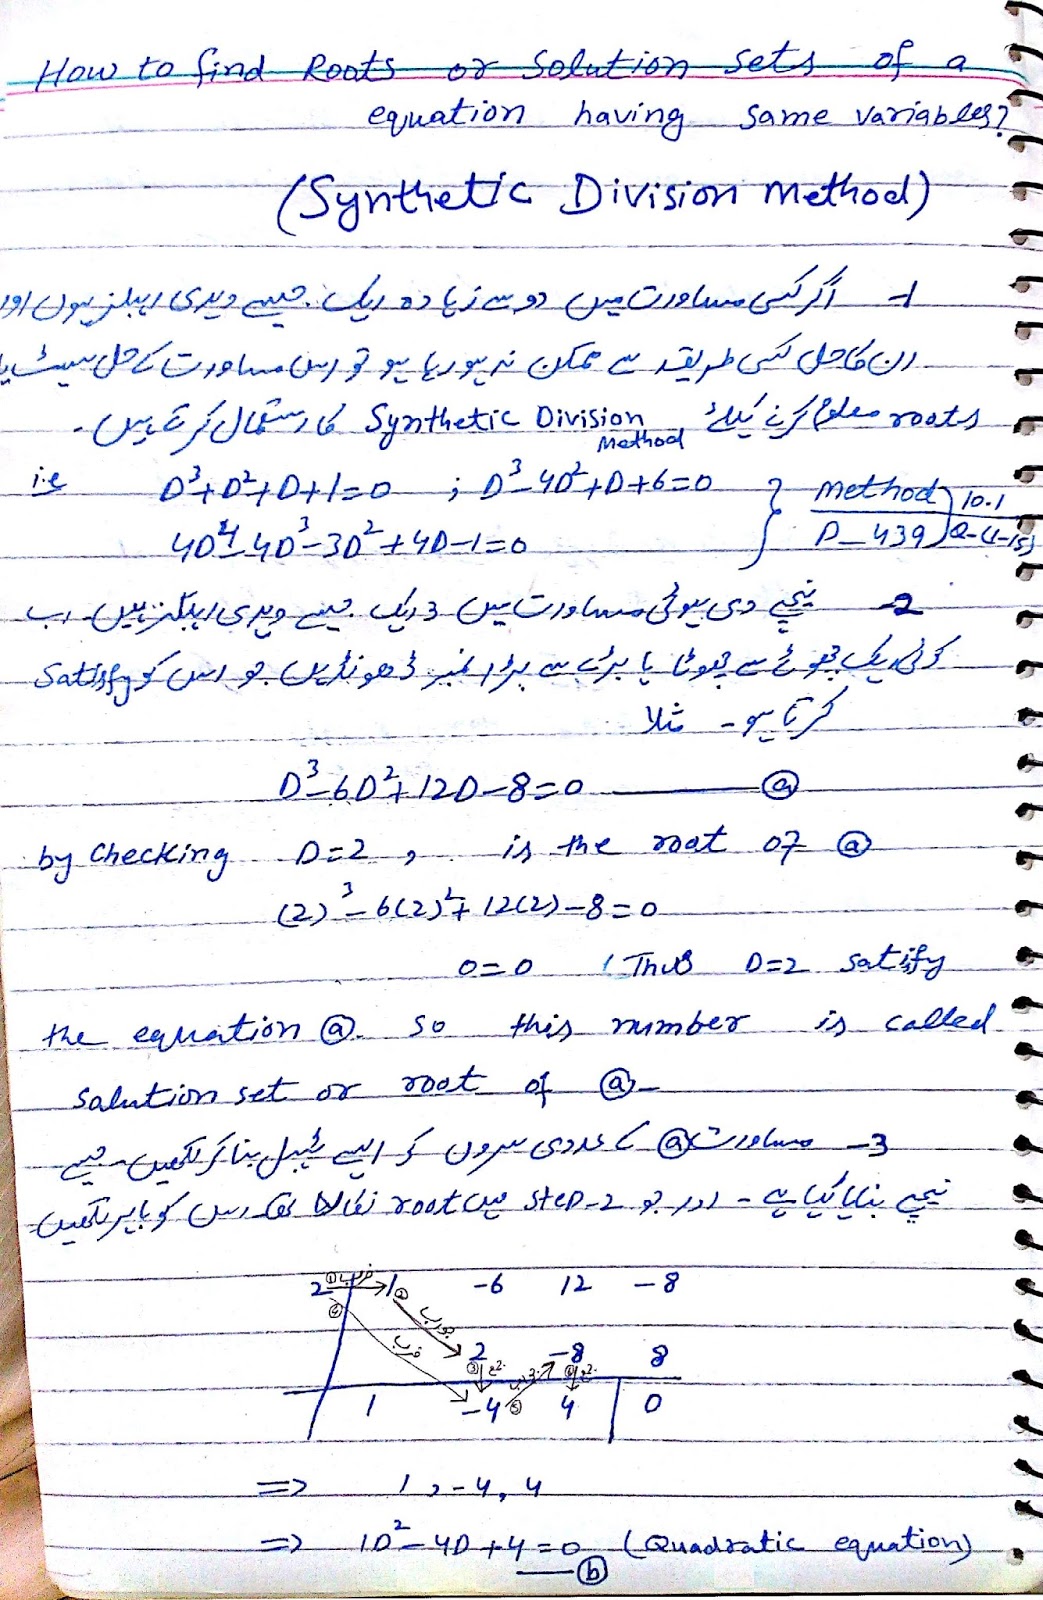 How to find Roots or Solution sets of a
equation having same variables?
(Synthetic Division Method)
1- اگر کسی مساورت میں دو سے زیادہ ایک جیسے ویری ایبلز ہوں اور
ان کا حل کسی طریقہ سے ممکن نہ ہو رہا ہو تو اس مساورت کے حل سیٹ یا
roots معلوم کرنے کیلئے Synthetic Division Method کا استعمال کرتے ہیں۔
i.e D³+D²+D+1=0 ; D³-4D²+D+6=0
4D⁴-4D³-3D²+4D-1=0
Method 10.1
P-439 Q-(1-15)
2- نیچے دی ہوئی مساورت میں 3 ایک جیسے ویری ایبلز ہیں۔ اب
کوئی ایک چھوٹے سے چھوٹا یا بڑے سے بڑا نمبر ڈھونڈیں جو اس کو Satisfy
کرتا ہو۔ مثلا
D³-6D²+12D-8=0 ——— ⓐ
by Checking D=2, is the root of ⓐ
(2)³-6(2)²+12(2)-8=0
0=0 Thus D=2 satisfy
the equation ⓐ. so this number is called
Solution set or root of ⓐ-
3- مساورت ⓐ کے عددی سروں کو ایسے ٹیبل بنا کر لکھیں۔ جیسے
نیچے بنایا گیا ہے۔ اور جو step-2 میں root نکالا تھا اس کو باہر لکھیں۔
2 ① ضرب 1 -6 12 -8
② جواب
④ ضرب
2 -8 8
③ جمع ⑥ جمع
1 -4 ⑤ 4 0
=> 1, -4, 4
=> 1D²-4D+4=0 (Quadratic equation)
—— ⓑ